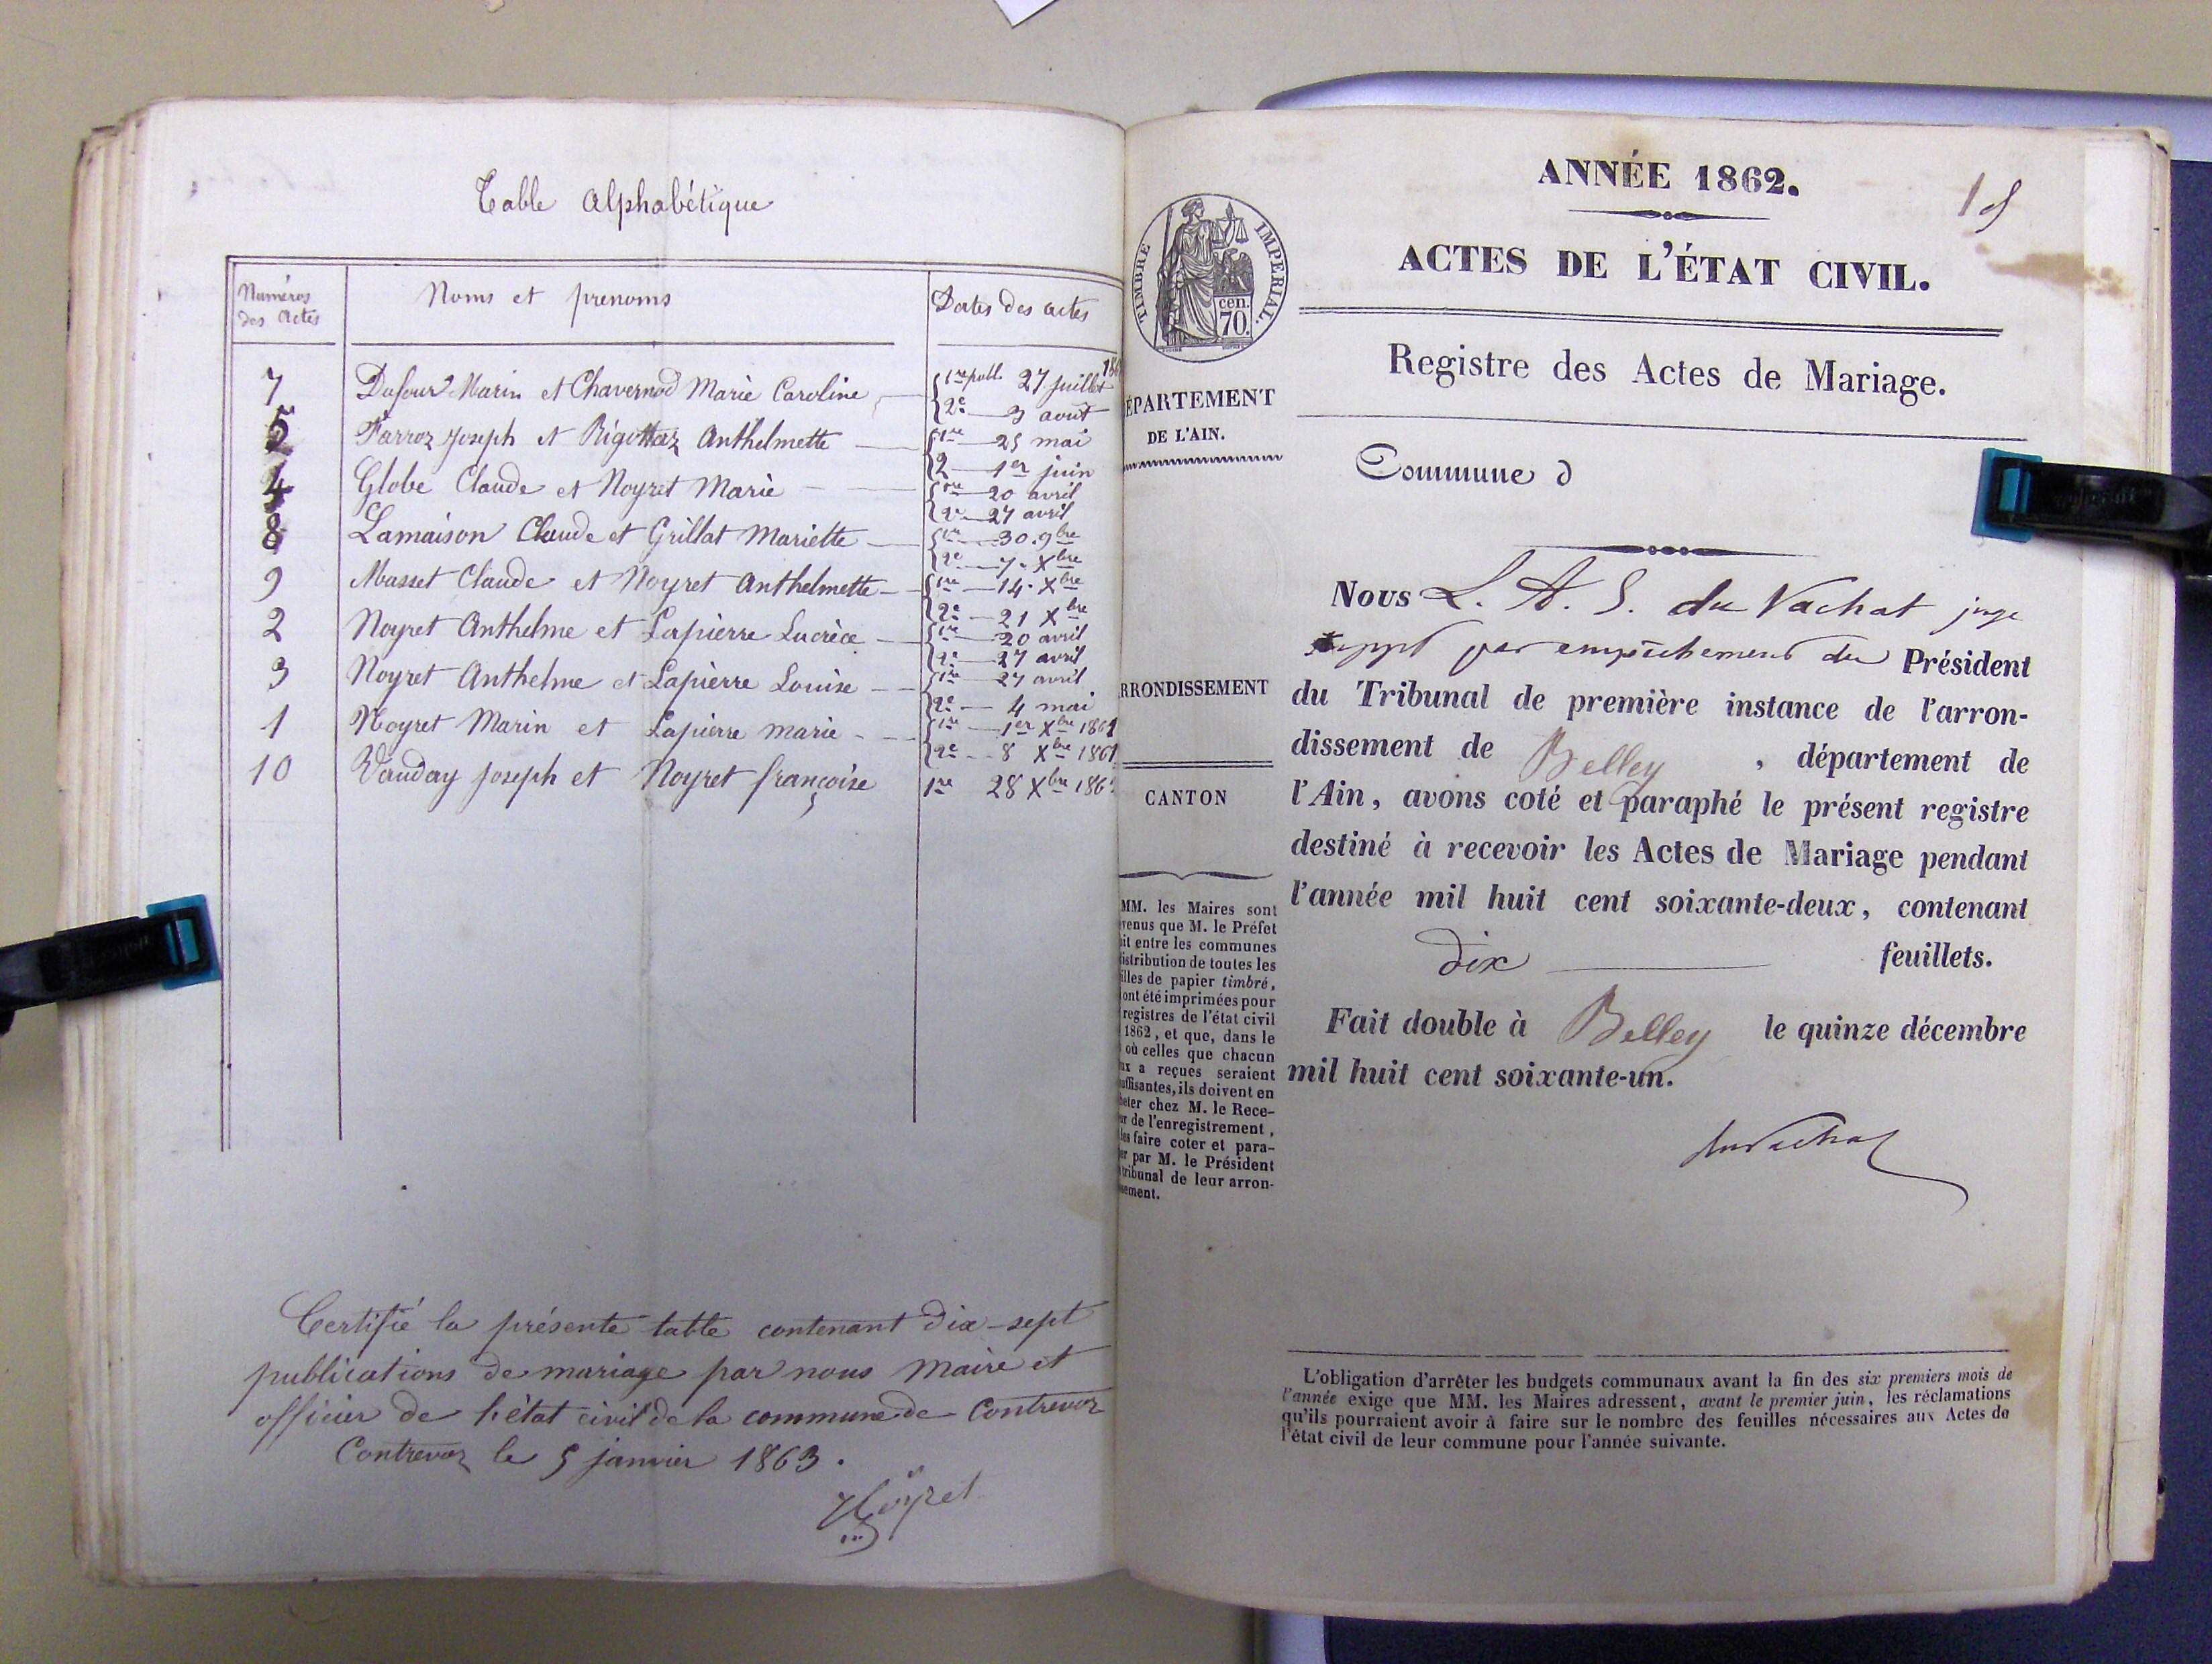 Table alphabétique
Numéros des actes
Noms et prenoms
Dates des actes
7 Dufour Marin et Chavernod Marie Caroline 1re publ. 27 juillet
2e 3 aout
5 Farroz Joseph et Rigottaz Anthelmette 1re 25 mai
2 1er juin
4 Globe Claude et Noyret Marie 1re 20 avril
2e 27 avril
8 Lamaison Claude et Grillat Mariette 1re 30. 9bre
2e 7. Xbre
9 Masset Claude et Noyret Anthelmette 1re 14. Xbre
2e 21 Xbre
2 Noyret Anthelme et Lapierre Lucrèce 1re 20 avril
2e 27 avril
3 Noyret Anthelme et Lapierre Louise 1re 27 avril
2e 4 mai
1 Noyret Marin et Lapierre marie 1re 1er Xbre 1861
2e 8 Xbre 1861
10 Vauday Joseph et Noyret françoise 1re 28 Xbre 186
Certifié la présente table contenant dix-sept
publications de mariage par nous Maire et
officier de l'état civil de la commune de Contrevoz
Contrevoz le 5 janvier 1863.
Noyret
ANNÉE 1862.
ACTES DE L'ÉTAT CIVIL.
TIMBRE IMPERIAL.
cen.
70.
Registre des Actes de Mariage.
ÉPARTEMENT
DE L'AIN.
Commune d
Nous L. A. S. du Vachat juge
suppt par empêchement du Président
du Tribunal de première instance de l'arron-
dissement de Belley, département de
l'Ain, avons coté et paraphé le présent registre
destiné à recevoir les Actes de Mariage pendant
l'année mil huit cent soixante-deux, contenant
dix feuillets.
Fait double à Belley le quinze décembre
mil huit cent soixante-un.
duVachat
RRONDISSEMENT
CANTON
MM. les Maires sont
venus que M. le Préfet
it entre les communes
istribution de toutes les
illes de papier timbré,
ont été imprimées pour
registres de l'état civil
1862, et que, dans le
où celles que chacun
ux a reçues seraient
uffisantes, ils doivent en
heter chez M. le Rece-
ur de l'enregistrement,
les faire coter et para-
er par M. le Président
tribunal de leur arron-
sement.
L'obligation d'arrêter les budgets communaux avant la fin des six premiers mois de
l'année exige que MM. les Maires adressent, avant le premier juin, les réclamations
qu'ils pourraient avoir à faire sur le nombre des feuilles nécessaires aux Actes de
l'état civil de leur commune pour l'année suivante.